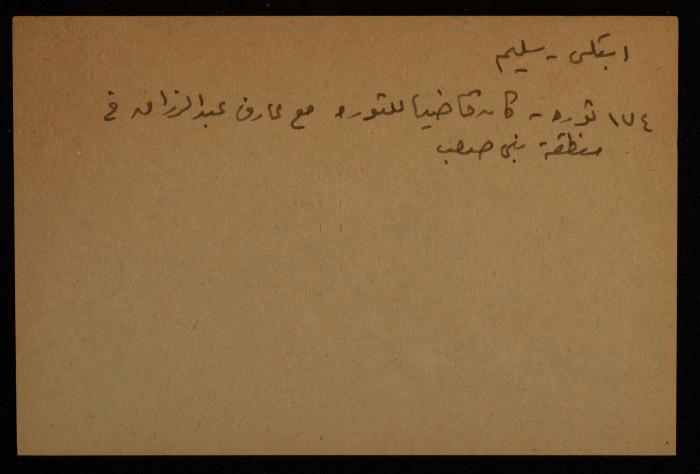 ابتلى - سليم
١٧٤ ثوره - كان قاضيا للثوره مع عارف عبد الرزاق في
منطقة بني صعب